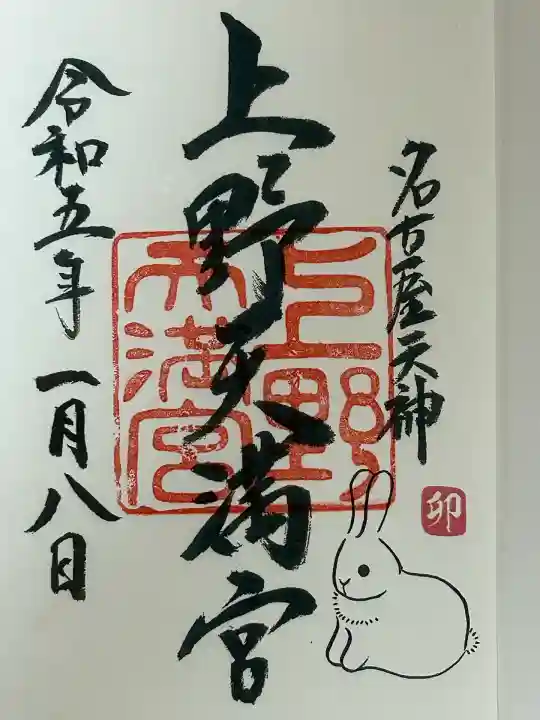 名古屋天神
卯
上野天満宮
上野
天満宮
令和五年一月八日